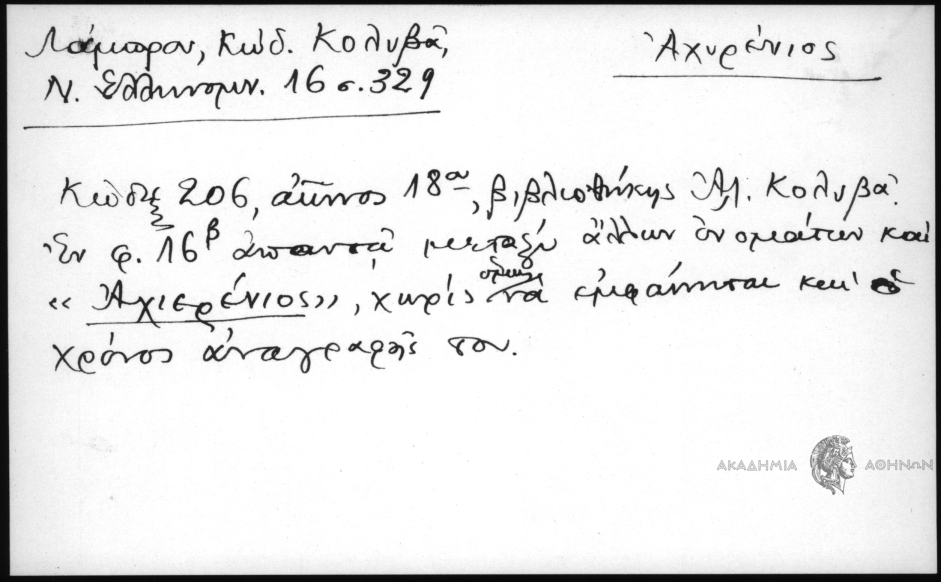 Λάμπρου, Κώδ. Κολυβᾶ,
Ν. Ἑλληνομν. 16 σ. 329
Ἀχυρένιος
Κῶδιξ 206, αἰῶνος 18ου, βιβλιοθήκης Ἀλ. Κολυβᾶ.
Ἐν φ. 16β ἀπαντᾷ μεταξὺ ἄλλων ὀνομάτων καὶ
«Ἀχιερένιος», χωρὶς ὅμως νὰ ἐμφαίνηται καὶ ὁ
χρόνος ἀναγραφῆς του.
ΑΚΑΔΗΜΙΑ ΑΘΗΝΩΝ